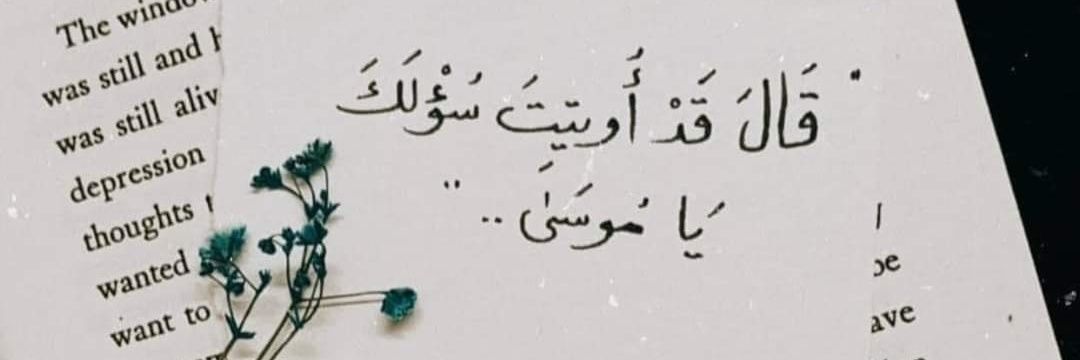 The window
was still and
was still aliv
depression
thoughts
wanted
want to
" قَالَ قَدْ أُوتِيتَ سُؤْلَكَ
يَا مُوسَىٰ .. "
be
ave